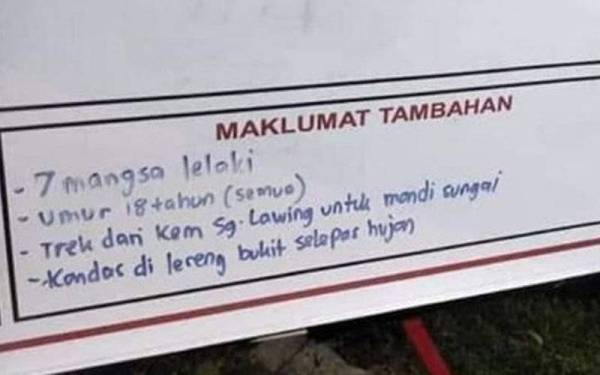 MAKLUMAT TAMBAHAN
- 7 mangsa lelaki
- umur 18 tahun (semua)
- Trek dari Kem Sg. Lawing untuk mandi sungai
- Kandas di lereng bukit selepas hujan